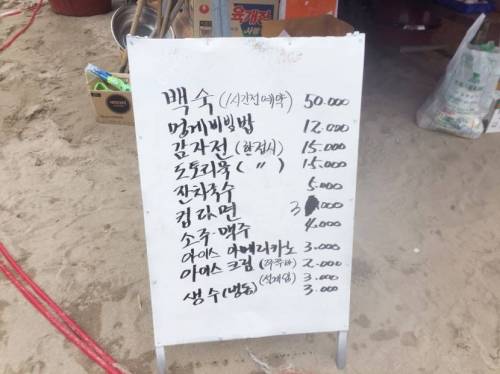 육개장
백숙 (1시간전예약) 50.000
멍게비빔밥 12.000
감자전 (한접시) 15.000
도토리묵 ( 〃 ) 15.000
잔치국수 5.000
컵라면 3.000
소주·맥주 4.000
아이스 아메리카노 3.000
아이스크림 2.000
3.000
생수 (냉동) 3.000